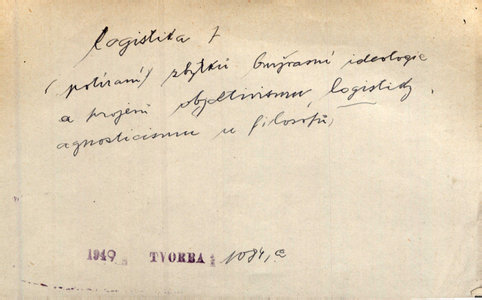 logistika f
(potírání) zbytků buržoasní ideologie
a projevů objektivismu, logistiky,
agnosticismu u filosofů,
1949 TVORBA 1084,